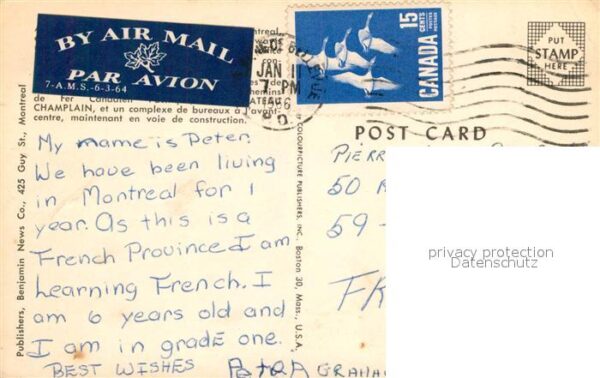 BY AIR MAIL
PAR AVION
7-A.M.S.-6-3-64
CHAMPLAIN, et un complexe de bureaux à l'avant-
centre, maintenant en voie de construction.
Publishers, Benjamin News Co., 425 Guy St., Montreal
JAN 11
PM
15
CENTS
POSTES
POSTAGE
CANADA
PUT
STAMP
HERE
POST CARD
BY COLOURPICTURE PUBLISHERS, INC., Boston 30, Mass., U.S.A.
My name is Peter.
We have been living
in Montreal for 1
year. As this is a
French Province I am
Learning French. I
am 6 years old and
I am in grade one.
BEST WISHES
GRAHAM
50
59-
privacy protection
Datenschutz